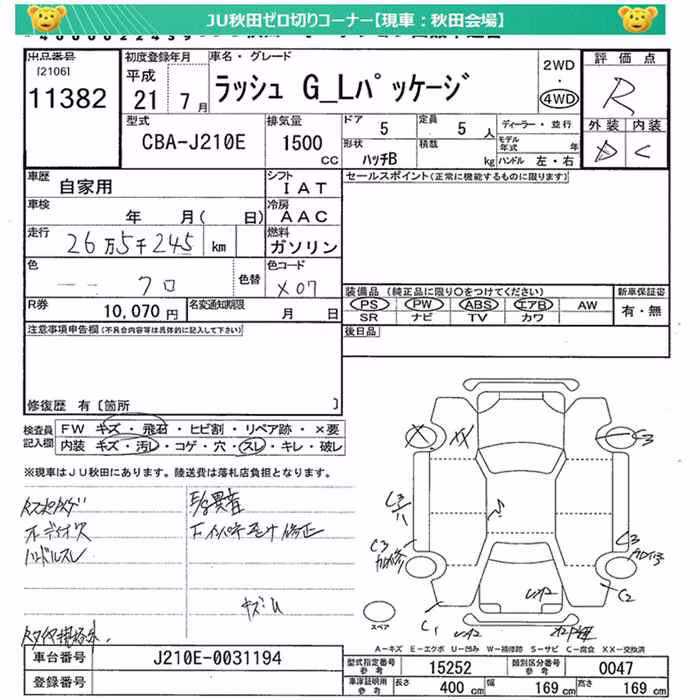 JU秋田ゼロ切りコーナー【現車：秋田会場】
出品番号 [2106] 11382
初度登録年月 平成 21年 7月
車名・グレード ラッシュ G_Lパッケージ
2WD ・ 4WD
評価点 R
外装 内装
D C
型式 CBA-J210E
排気量 1500 CC
ドア 5 定員 5人
形状 ハッチB 積載 kg
ディーラー・並行
モデル年式 年
ハンドル 左・右
車歴 自家用
シフト IAT
セールスポイント(正常に機能するものに限ります)
車検 年 月( 日)
冷房 AAC
走行 26万5千245 km
燃料 ガソリン
色 クロ 色替
色コード X07
R券 10,070円
名変通知期限 月 日
装備品 (純正品に限り○をつけてください)
新車保証書 有・無
PS PW ABS エアB AW
SR ナビ TV カワ
後日品
注意事項申告欄(不具合内容等は具体的に記入して下さい)
修復歴 有〔箇所 〕
検査員記入欄
FW キズ・飛石・ヒビ割・リペア跡・×要
内装 キズ・汚レ・コゲ・穴・スレ・キレ・破レ
※現車はJU秋田にあります。陸送費は落札店負担となります。
E/g異音
オーディオ欠
ハンドルスレ
X XX C3
C3 C3
C2
C1
スペア
A－キズ E－エクボ U－凹み W－補修跡 S－サビ C－腐食 XX－交換済
車台番号 J210E-0031194
登録番号
型式指定番号 参考 15252
類別区分番号 参考 0047
車庫証明用 参考 長さ 400 cm 幅 169 cm 高さ 169 cm